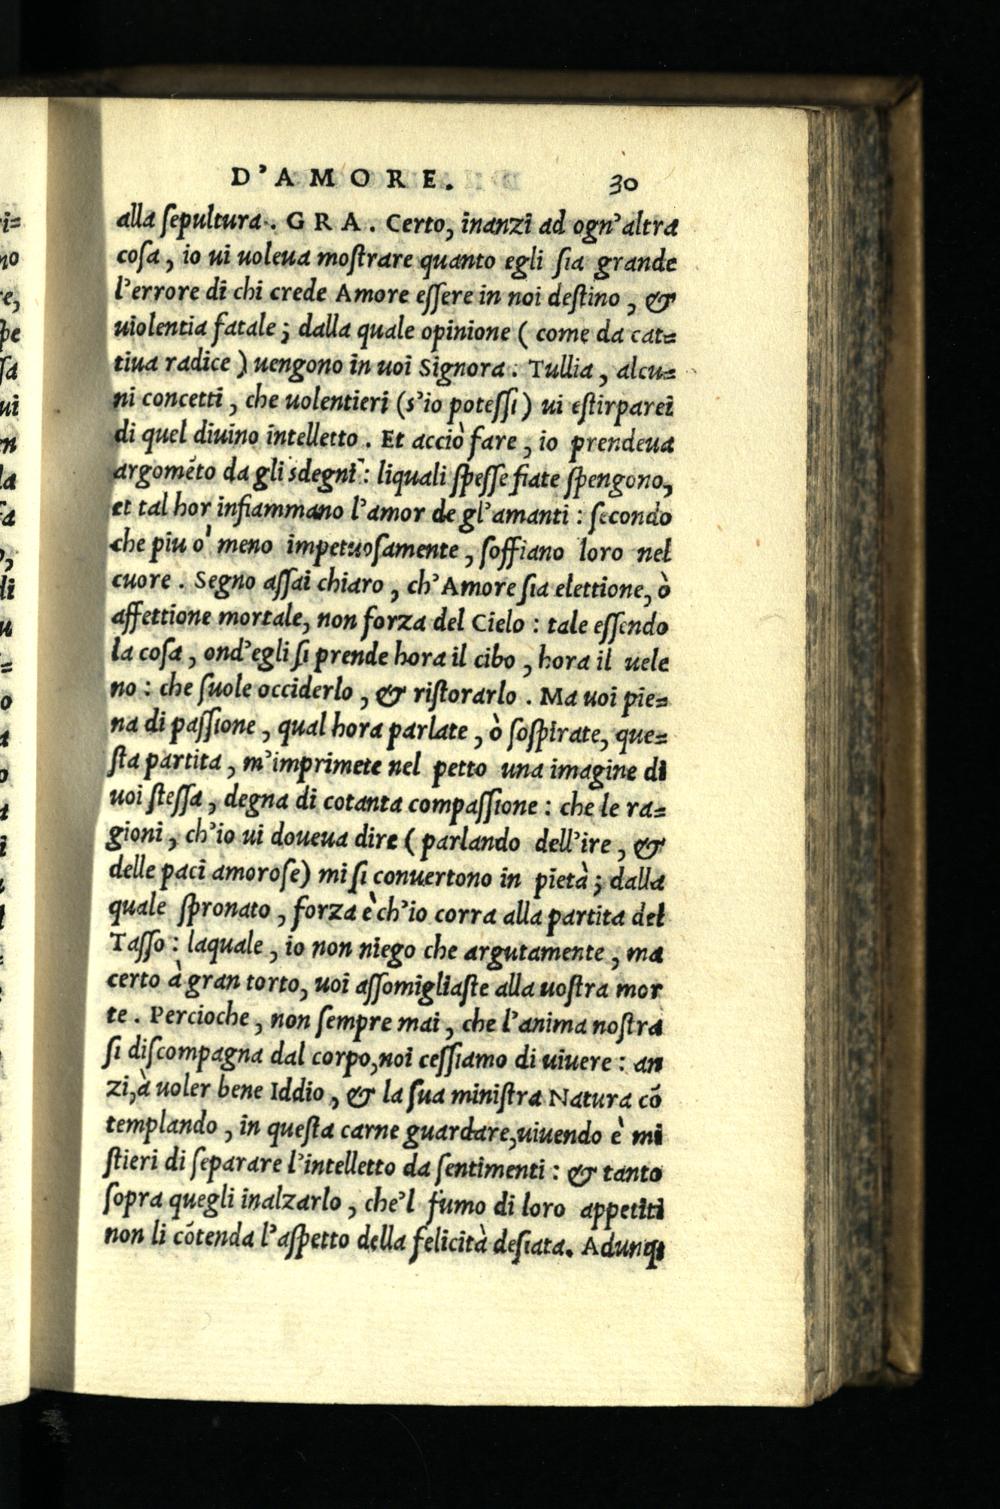 D'AMORE. 30
alla ſepultura. GRA. Certo, inanzi ad ogn'altra
coſa, io ui uoleua moſtrare quanto egli ſia grande
l'errore di chi crede Amore eſſere in noi deſtino, &
uiolentia fatale; dalla quale opinione (come da cat=
tiua radice) uengono in uoi Signora. Tullia, alcu=
ni concetti, che uolentieri (s'io poteſſi) ui eſtirparei
di quel diuino intelletto. Et acciò fare, io prendeua
argomẽto da gli sdegni: liquali ſpeſſe fiate ſpengono,
et tal hor infiammano l'amor de gl'amanti: ſecondo
che piu o' meno impetuoſamente, ſoffiano loro nel
cuore. Segno aſſai chiaro, ch'Amore ſia elettione, ò
affettione mortale, non forza del Cielo: tale eſſendo
la coſa, ond'egli ſi prende hora il cibo, hora il uele
no: che ſuole occiderlo, & riſtorarlo. Ma uoi pie=
na di paſſione, qual hora parlate, ò ſoſpirate, que=
ſta partita, m'imprimete nel petto una imagine di
uoi ſteſſa, degna di cotanta compaſſione: che le ra=
gioni, ch'io ui doueua dire (parlando dell'ire, &
delle paci amoroſe) mi ſi conuertono in pietà; dalla
quale ſpronato, forza è ch'io corra alla partita del
Taſſo: laquale, io non niego che argutamente, ma
certo à gran torto, uoi aſſomigliaſte alla uoſtra mor
te. Percioche, non ſempre mai, che l'anima noſtra
ſi diſcompagna dal corpo, noi ceſſiamo di uiuere: an
zi, à uoler bene Iddio, & la ſua miniſtra Natura cõ
templando, in queſta carne guardare, uiuendo è mi
ſtieri di ſeparare l'intelletto da ſentimenti: & tanto
ſopra quegli inalzarlo, che'l fumo di loro appetiti
non li cõtenda l'aſpetto della felicità deſiata. Adunq;